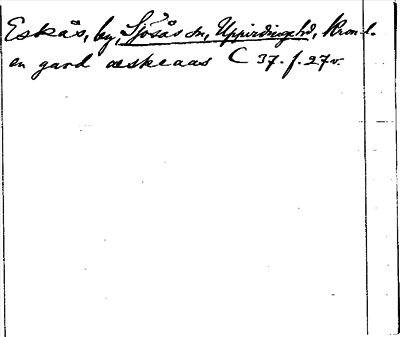 Eskås, by, Sjösås sn, Uppvidingehd, Kron. l.
en gard æskeaas C 37. f. 27 v.